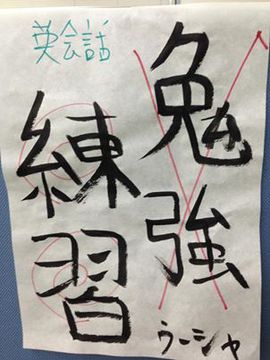 英会話
勉強
練習
ウーシャ